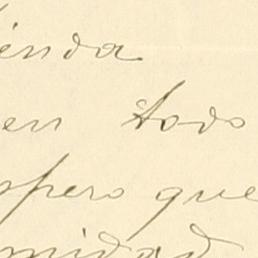 ienda
en todo
spero que
midad